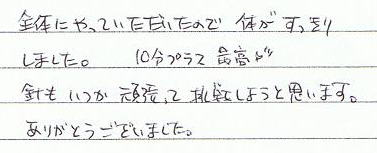 全体にやっていただいたので 体がすっきり
しました。 10分プラスで 最高が
針も いつか 頑張って 挑戦しようと思います。
ありがとうございました。